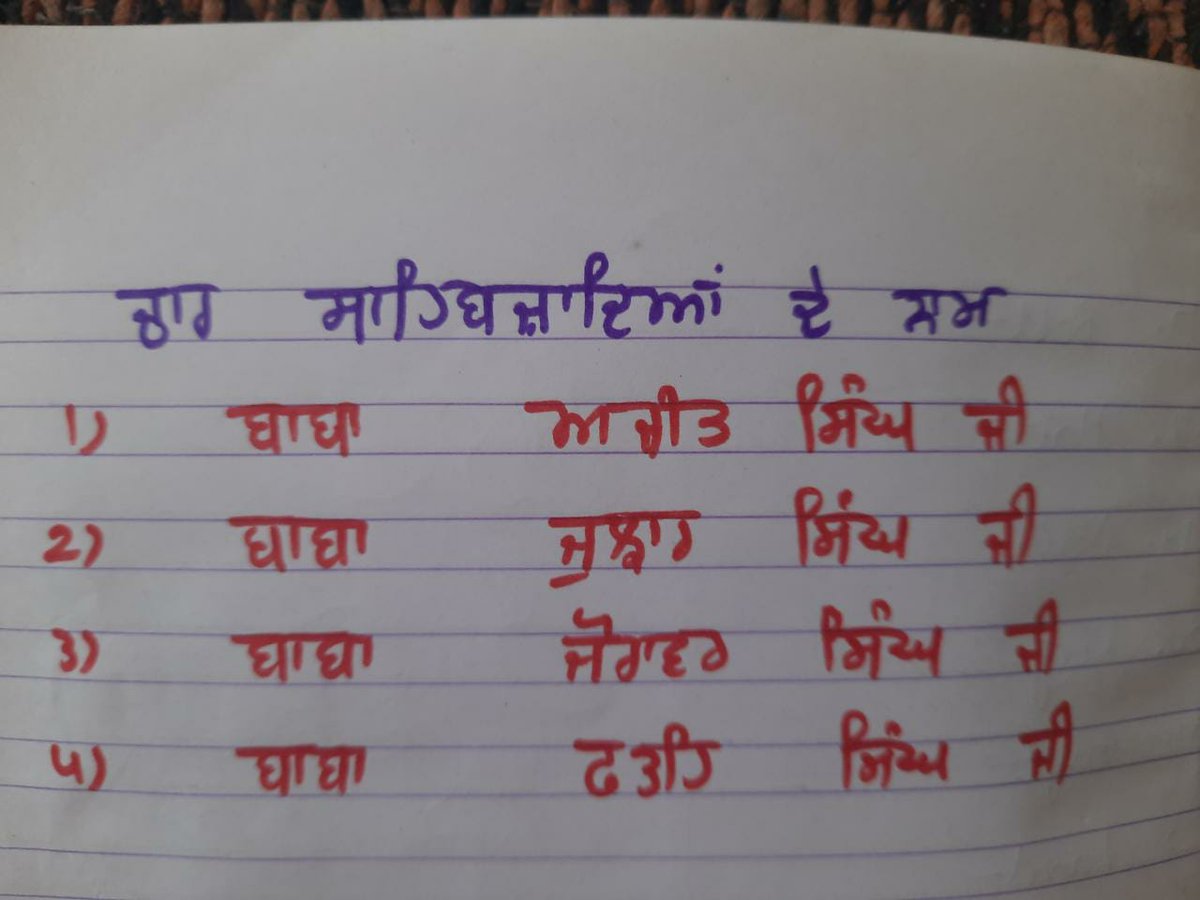 ਚਾਰ ਸਾਹਿਬਜ਼ਾਦਿਆਂ ਦੇ ਨਾਮ
1) ਬਾਬਾ ਅਜੀਤ ਸਿੰਘ ਜੀ
2) ਬਾਬਾ ਜੁਝਾਰ ਸਿੰਘ ਜੀ
3) ਬਾਬਾ ਜੋਰਾਵਰ ਸਿੰਘ ਜੀ
4) ਬਾਬਾ ਫਤਹਿ ਸਿੰਘ ਜੀ